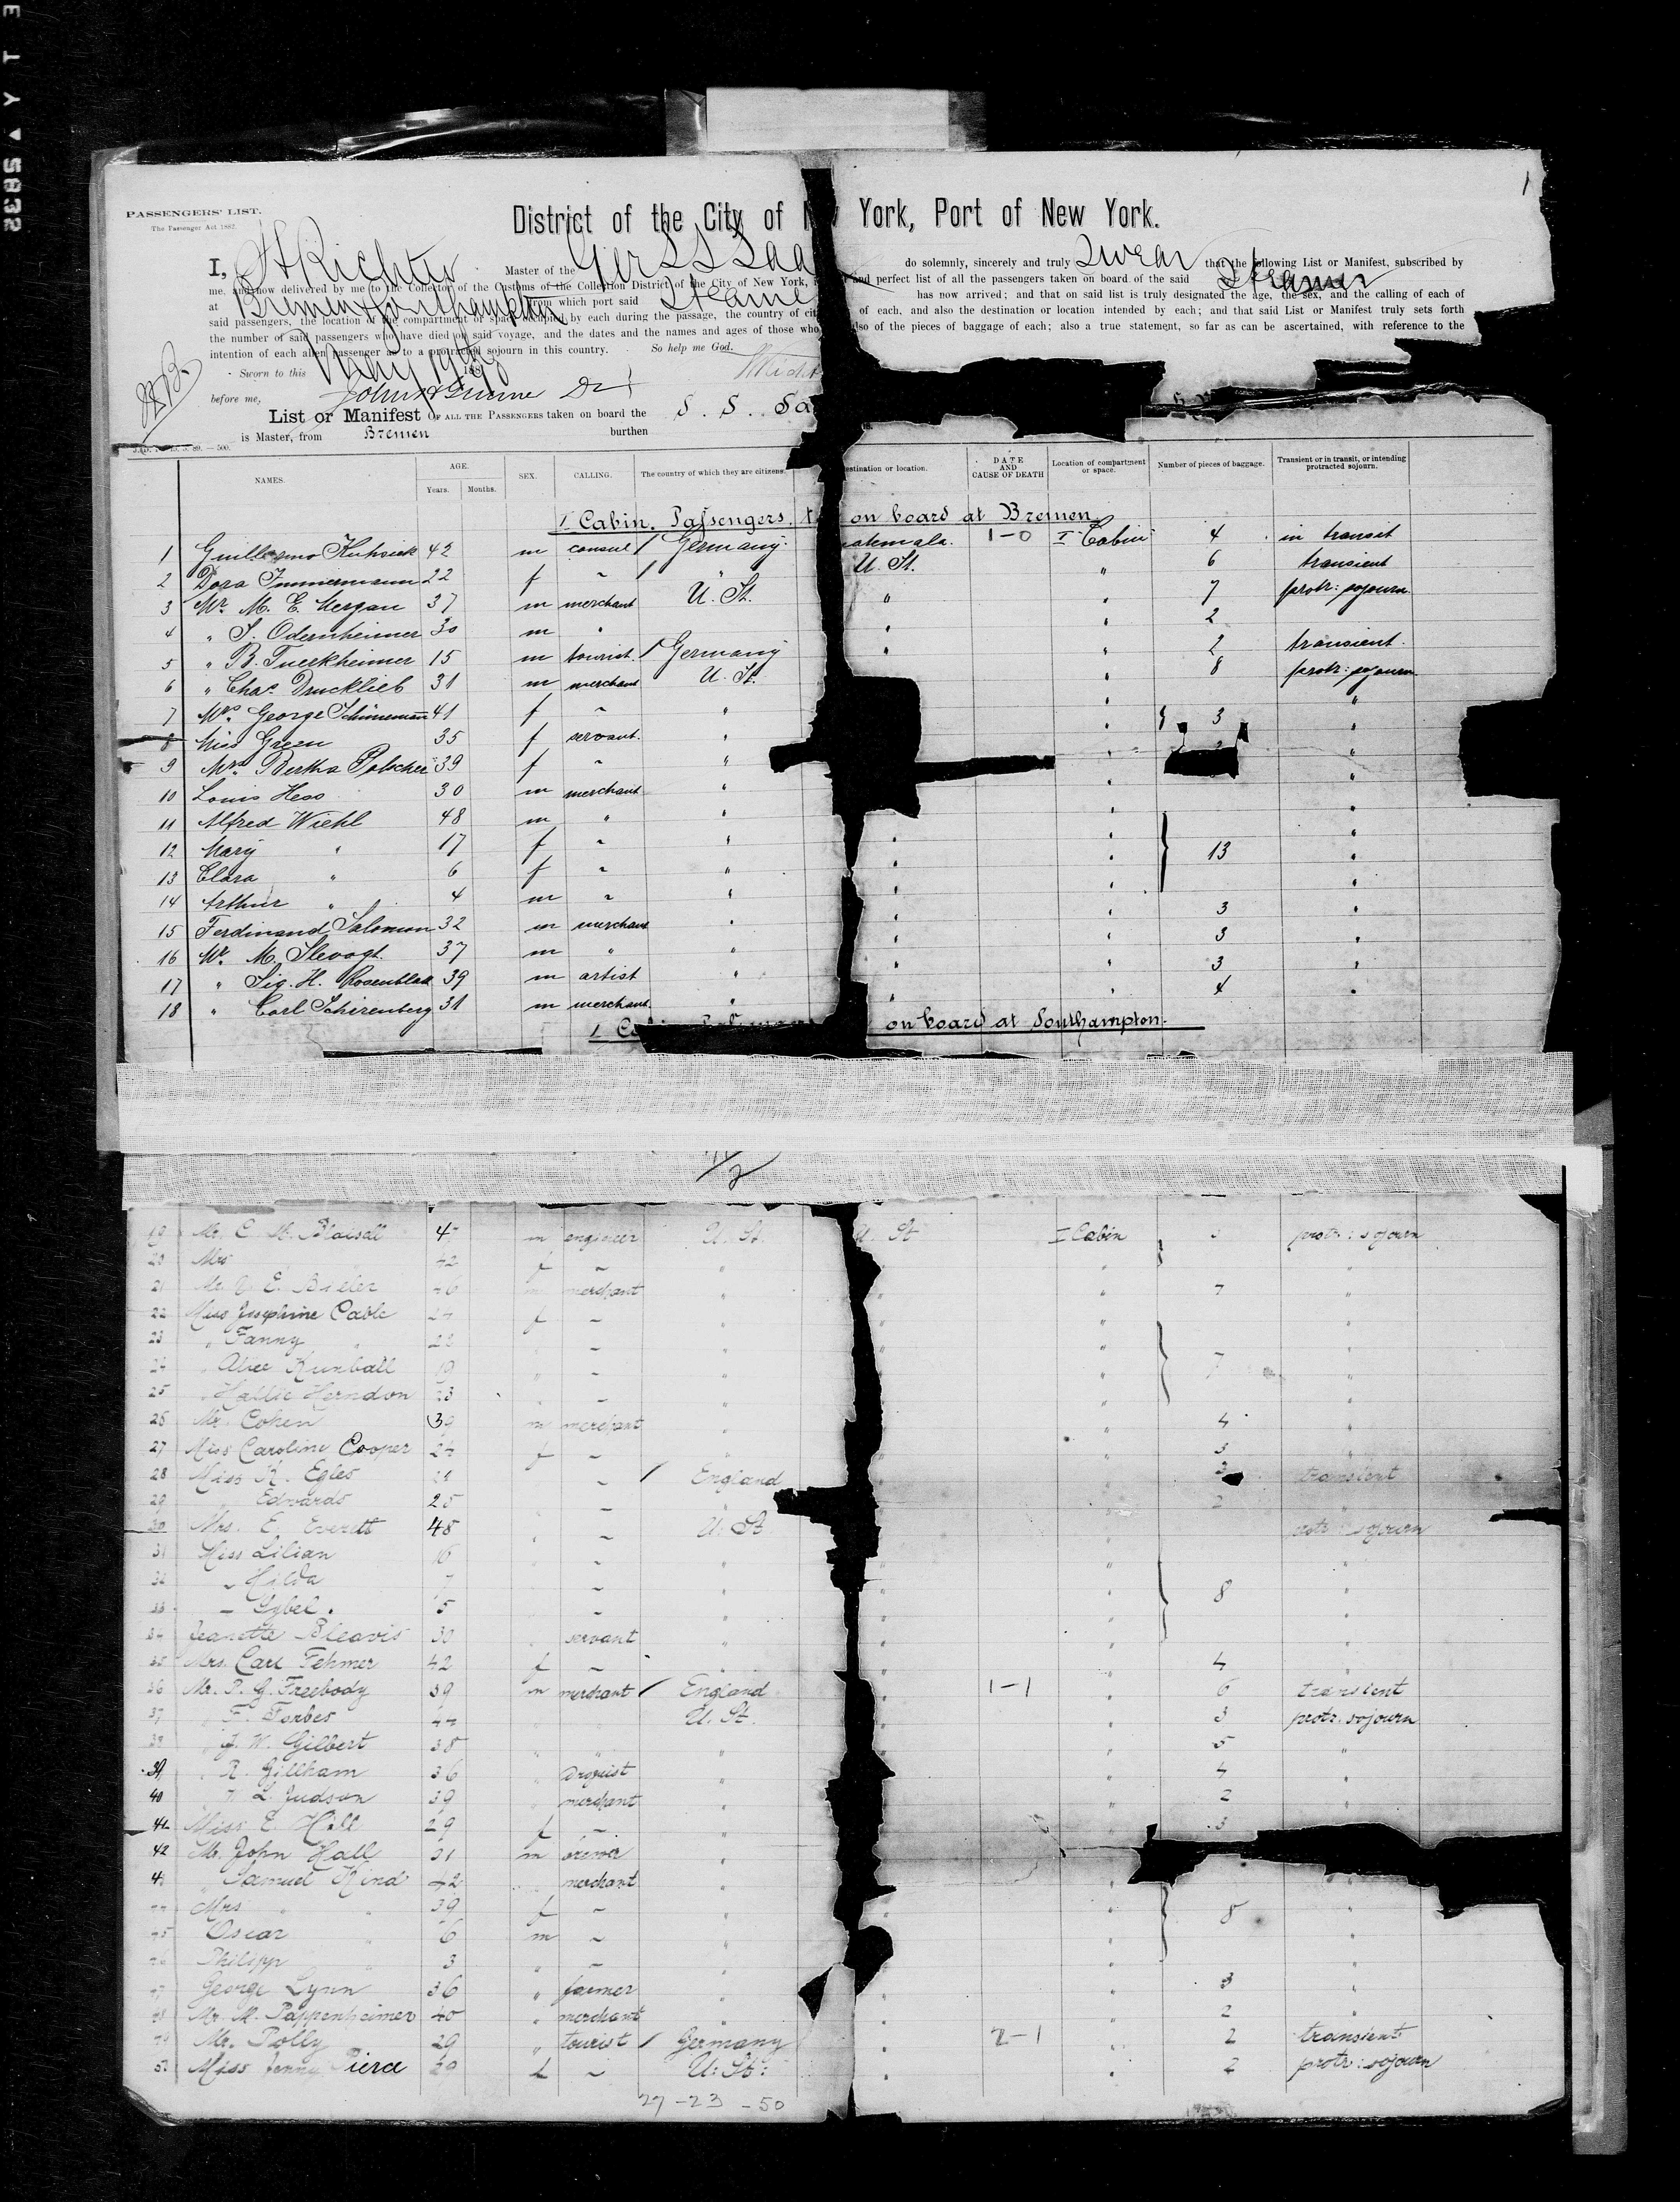 PASSENGERS' LIST.
The Passenger Act 1882.
1
District of the City of N York, Port of New York.
I, H Richter Master of the Ger SS Saa do solemnly, sincerely and truly Swear that the following List or Manifest, subscribed by
me, and now delivered by me to the Collector of the Customs of the Collection District of the City of New York, and perfect list of all the passengers taken on board of the said Steamer
at Bremen & Southampton from which port said Steame has now arrived; and that on said list is truly designated the age, the sex, and the calling of each of
said passengers, the location of the compartment or space occupied by each during the passage, the country of cit of each, and also the destination or location intended by each; and that said List or Manifest truly sets forth
the number of said passengers who have died on said voyage, and the dates and the names and ages of those who also of the pieces of baggage of each; also a true statement, so far as can be ascertained, with reference to the
intention of each alien passenger as to a protracted sojourn in this country. So help me God.
Sworn to this May 19th
before me,
List or Manifest OF ALL THE PASSENGERS taken on board the S. S. Sa
is Master, from Bremen burthen
NAMES. AGE. Years. Months. SEX. CALLING. The country of which they are citizens. estination or location. DATE AND CAUSE OF DEATH Location of compartment or space. Number of pieces of baggage. Transient or in transit, or intending protracted sojourn.
I Cabin. Passengers. on board at Bremen.
1 Guillermo 42 m consul / Germany. atemala. 1-0 I Cabin 4 in transit
2 Dora Immermann 22 f ~ / " U. St. " 6 transient
3 Mr. M. E. Mergan 37 m merchant U. St. " " 7 protr: sojourn
4 " S. Odernheimer 30 m " " " 2
5 " B. Tuerkheimer 15 m tourist / Germany " " 2 transient.
6 " Chas. Drucklieb 31 m merchant U. St. " 8 protr: sojourn
7 Mrs. George Schünemann 41 f ~ " " 3 "
8 Miss Green 35 f servant. " " "
9 Mrs. Bertha Polscher 39 f ~ " "
10 Louis Hess 30 m merchant " " "
11 Alfred Wiehl 48 m " " " "
12 Mary " 17 f ~ " " " 13 "
13 Clara " 6 f ~ " " " "
14 Arthur " 4 m ~ " " " "
15 Ferdinand Salomon 32 m merchant " " " 3 "
16 Mr. M. Slevogt 37 m " " " " 3 "
17 " Sig. H. Rosenblad 39 m artist " " " 3 "
18 " Carl Schirenberg 31 m merchant " " " 4 "
I Ca on board at Southampton.
19 Mr. C. M. Blaisdell m engineer U. St. U. St I Cabin protr: sojourn
20 Mrs " 42 f ~ " " " "
21 E. Bieler m merchant " " " 7 "
22 Miss Josephine Cable f ~ " " " "
23 " Fanny " 23 " ~ " " " "
24 " Alice Kimball 19 " ~ " " " 7 "
25 " Hallie Herndon 23 " ~ " " " "
26 Mr. Cohen 39 m merchant " " " 4 "
27 Miss Caroline Cooper 24 f ~ " " " 3 "
28 Miss K. Egles ~ / England " transient
29 " Edwards 25 ~ " " 2 "
30 Mrs. E. Everett 48 " ~ U. St " protr: sojourn
31 Miss Lilian 16 " ~ " " " "
32 ~ Hilda 7 ~ " " " 8 "
33 ~ Sybel. 5 ~ " " " "
34 Jeanette Bleavis 30 servant " " " "
35 Mrs. Carl Fehmer 42 f ~ " " " 4 "
36 Mr. P. G. Freebody 39 m merchant / England " 1-1 " 6 transient
37 " F. Forbes 44 " " U. St. " " 3 protr. sojourn
38 " J. W. Gilbert 38 " " " " " 5 "
39 " R. Gillham 36 " " " " 4 "
40 L. Judson 39 " merchant " " " 2 "
41 Miss E. Hill 29 f ~ " " " 3
42 Mr. John Hall 31 m "
43 " Samuel Kind 42 " merchant " " "
44 Mrs " " 39 f ~ " " " 8 "
45 Oscar " 6 m ~ " " " "
46 Philipp " 3 " ~ " " " "
47 George Lynn 36 " farmer " " " 3 "
48 Mr. M. Pappenheimer 40 " merchant " " " 2 "
49 Mr. Polly 29 " tourist / Germany " 2-1 " 2 transient
50 Miss Jenny Pierce 29 f ~ U. St: " " 2 protr: sojourn
27 - 23 - 50